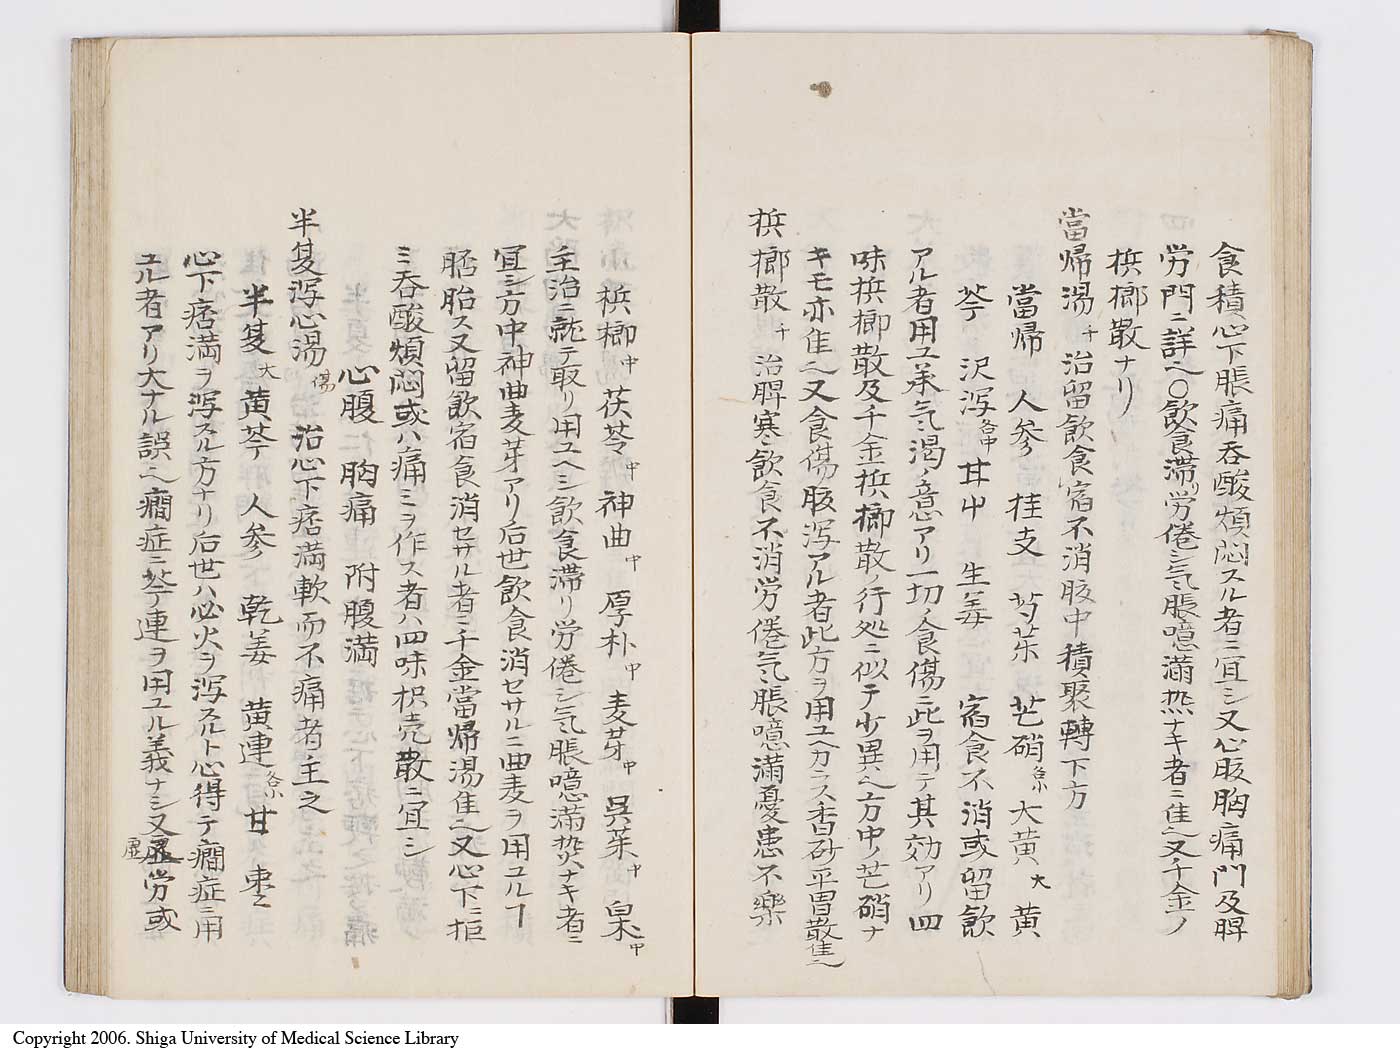 食積心下脹痛呑酸煩悶スル者ニ宜シ又心腹胸痛門及脾
労門ニ詳ヘ〇飲食滞リ労倦シ气脹噫滿𤍠ナキ者ニ佳ヘ又千金ノ
梹榔散ナリ
當帰湯 千 治留飲食宿不消腹中積聚轉下方
當帰 人参 桂支 芍薬 芒硝 各小 大黄 大 黄
芩 沢瀉 各中 甘中 生姜 宿食不消或留飲
アル者用ユ羕气渇ノ意アリ一切ノ食傷ニ此ヲ用テ其効アリ四
味梹榔散及千金梹榔散ノ行処ニ似テ少異ヘ方中ノ芒硝ナ
キモ亦佳ヘ又食傷腹瀉アル者此方ヲ用ユヘカラス香砂平胃散佳ヘ
梹榔散 千 治脾寒飲食不消労倦气脹噫滿憂患不樂
梹榔 中 茯苓 中 神曲 中 厚朴 中 麦芽 中 呉茱 中 枲 中
主治ニ就テ取リ用ユヘシ飲食滞リ労倦シ气脹噫滿𤍠ナキ者ニ
宜シ方中神曲麦芽アリ后世飲食消セサルニ曲麦ヲ用ユルヿ
胚胎ス又留飲宿食消セサル者ニ千金當帰湯佳ヘ又心下ニ拒
ミ呑酸煩悶或ハ痛ミヲ作ス者ハ四味枳壳散ニ宜シ
心腹 胸痛 附腹満
半夏瀉心湯 傷 治心下痞満軟而不痛者主之
半夏 大 黄芩 人参 乾姜 黄連 各小 甘 棗
心下痞満ヲ瀉スル方ナリ后世ハ必火ヲ瀉スルト心得テ癇症ニ用
ユル者アリ大ナル誤ヘ癇症ニ芩連ヲ用ユル義ナシ又虚労或
虚
Copyright 2006. Shiga University of Medical Science Library